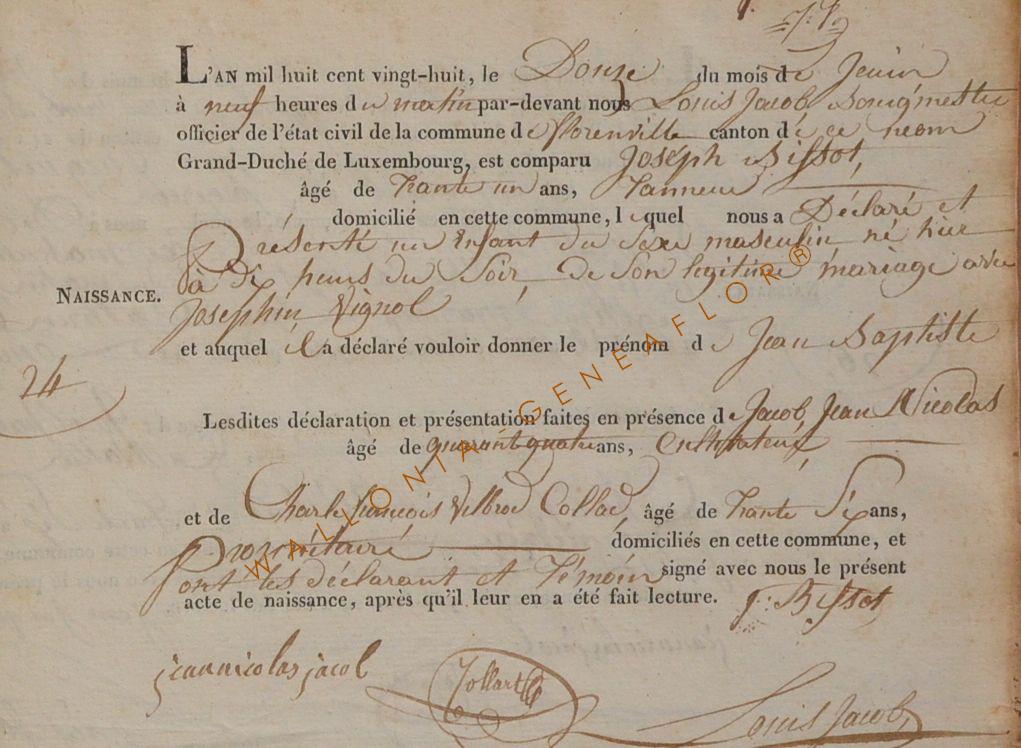 L'AN mil huit cent vingt-huit, le Douze du mois de Jeuin
à neuf heures du matin par-devant nous Louis Jacob Bourgmestre
officier de l'état civil de la commune de florenville canton de ce neom
Grand-Duché de Luxembourg, est comparu Joseph Bissot,
âgé de trante un ans, Tanneur
domicilié en cette commune, lequel nous a Déclaré et
Présenté un Enfant du Sexe masculin né hier
à dix heurs du Soir, de Son legitime mariage avec
NAISSANCE.
Josephin Vignol
et auquel il a déclaré vouloir donner le prénom de Jean Baptiste
24
Lesdites déclaration et présentation faites en présence de Jacob Jean Nicolas
âgé de quarant quatre ans, Cultivateur
et de Charle francois Collad âgé de trante Six ans,
Proprietaire domiciliés en cette commune, et
Font les déclarant et Témoin signé avec nous le présent
acte de naissance, après qu'il leur en a été fait lecture. J: Bissot
jean nicolas jacob Collart Louis Jacob
WALLONIA GENEAFLOR®